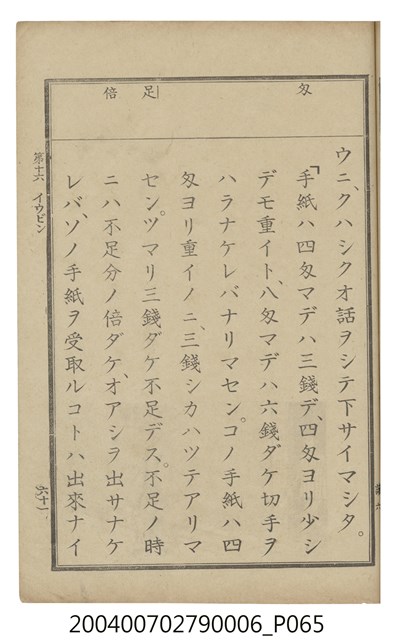 匁
足
倍
ウニ、クハシクオ話ヲシテ下サイマシタ。
「手紙ハ四匁マデハ三錢デ、四匁ヨリ少シ
デモ重イト、八匁マデハ六錢ダケ切手ヲ
ハラナケレバナリマセン。コノ手紙ハ四
匁ヨリ重イノニ、三錢シカハツテアリマ
セン。ツマリ三錢ダケ不足デス。不足ノ時
ニハ不足分ノ倍ダケ、オアシヲ出サナケ
レバ、ソノ手紙ヲ受取ルコトハ出來ナイ
第十六 イウビン
六十一
200400702790006_P065